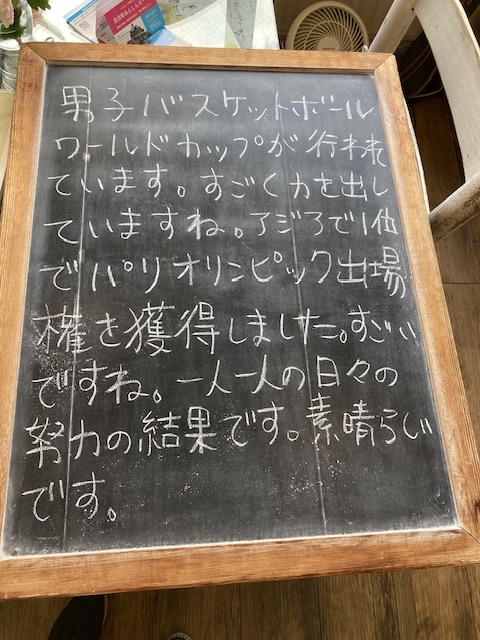 男子バスケットボール
ワールドカップが行われ
ています。すごく力を出し
ていますね。アジアで1位
でパリオリンピック出場
権を獲得しました。すごい
ですね。一人一人の日々の
努力の結果です。素晴らしい
です。